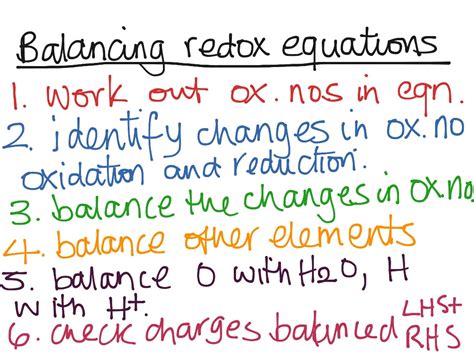 Balancing redox equations
1. Work out ox. nos in eqn.
2. identify changes in ox. no
oxidation and reduction.
3. balance the changes in ox. no
4. balance other elements
5. balance O with H2O, H
with H+.
6. check charges balanced LHS+
RHS